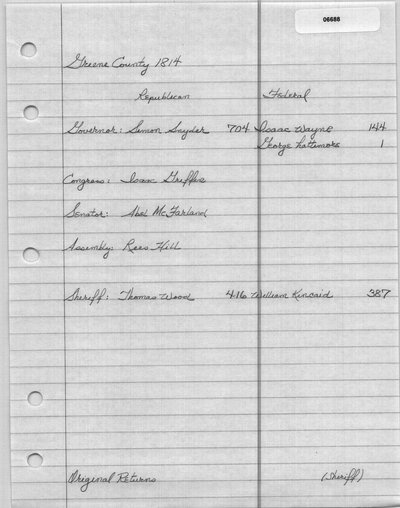 06688
Greene County 1814
Republican Federal
Governor: Simon Snyder 704 Isaac Wayne 144
George Lattimore 1
Congress: Isaac Griffin
Senator: Abel McFarland
Assembly: Rees Hill
Sheriff: Thomas Wood 416 William Kincaid 387
Original Returns (Sheriff)